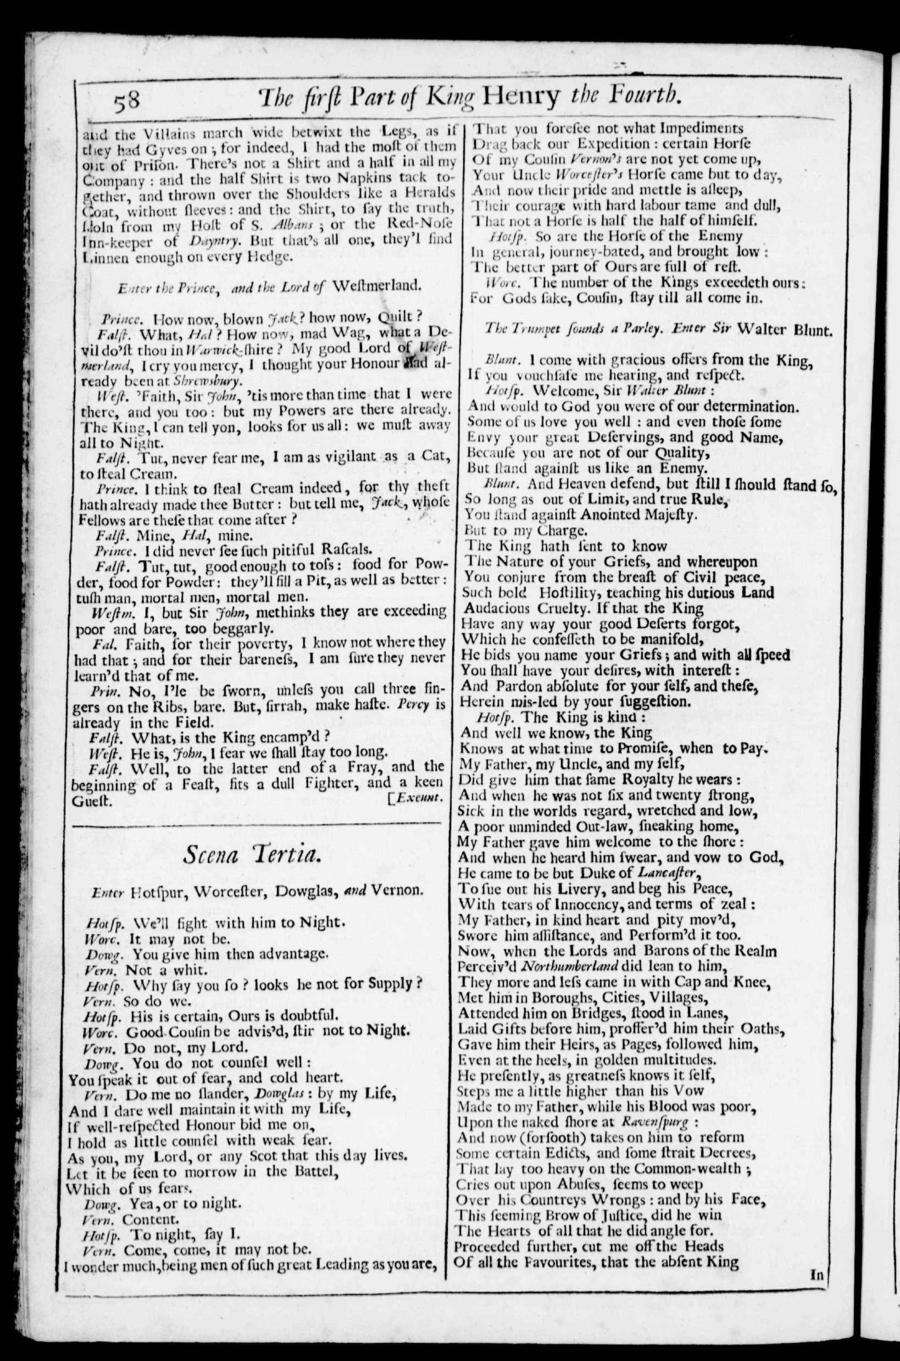 58
The firſt Part of King Henry the Fourth.
and the Villains march wide betwixt the Legs, as if
they had Gyves on ; for indeed, I had the moſt of them
out of Priſon. There's not a Shirt and a half in all my
Company : and the half Shirt is two Napkins tack to-
gether, and thrown over the Shoulders like a Heralds
Coat, without ſleeves : and the Shirt, to ſay the truth,
ſtoln from my Hoſt of S. Albans ; or the Red-Noſe
Inn-keeper of Dayntry. But that's all one, they'l find
Linnen enough on every Hedge.
Enter the Prince, and the Lord of Weſtmerland.
Prince. How now, blown Jack? how now, Quilt ?
Falſt. What, Hal ? How now, mad Wag, what a De-
vil do'ſt thou in Warwick-ſhire ? My good Lord of Weſt-
merland, I cry you mercy, I thought your Honour had al-
ready been at Shrewsbury.
Weſt. 'Faith, Sir John, 'tis more than time that I were
there, and you too : but my Powers are there already.
The King, I can tell yon, looks for us all : we muſt away
all to Night.
Falſt. Tut, never fear me, I am as vigilant as a Cat,
to ſteal Cream.
Prince. I think to ſteal Cream indeed, for thy theft
hath already made thee Butter : but tell me, Jack, whoſe
Fellows are theſe that come after ?
Falſt. Mine, Hal, mine.
Prince. I did never ſee ſuch pitiful Raſcals.
Falſt. Tut, tut, good enough to toſs : food for Pow-
der, food for Powder : they'll fill a Pit, as well as better :
tuſh man, mortal men, mortal men.
Weſtm. I, but Sir John, methinks they are exceeding
poor and bare, too beggarly.
Fal. Faith, for their poverty, I know not where they
had that ; and for their bareneſs, I am ſure they never
learn'd that of me.
Prin. No, I'le be ſworn, unleſs you call three fin-
gers on the Ribs, bare. But, ſirrah, make haſte. Percy is
already in the Field.
Falſt. What, is the King encamp'd ?
Weſt. He is, John, I fear we ſhall ſtay too long.
Falſt. Well, to the latter end of a Fray, and the
beginning of a Feaſt, fits a dull Fighter, and a keen
Gueſt. [Exeunt.
Scena Tertia.
Enter Hotſpur, Worceſter, Dowglas, and Vernon.
Hotſp. We'll fight with him to Night.
Worc. It may not be.
Dowg. You give him then advantage.
Vern. Not a whit.
Hotſp. Why ſay you ſo ? looks he not for Supply ?
Vern. So do we.
Hotſp. His is certain, Ours is doubtful.
Worc. Good Couſin be advis'd, ſtir not to Night.
Vern. Do not, my Lord.
Dowg. You do not counſel well :
You ſpeak it out of fear, and cold heart.
Vern. Do me no ſlander, Dowglas : by my Life,
And I dare well maintain it with my Life,
If well-reſpected Honour bid me on,
I hold as little counſel with weak fear.
As you, my Lord, or any Scot that this day lives.
Let it be ſeen to morrow in the Battel,
Which of us fears.
Dowg. Yea, or to night.
Vern. Content.
Hotſp. To night, ſay I.
Vern. Come, come, it may not be.
I wonder much, being men of ſuch great Leading as you are,
That you foreſee not what Impediments
Drag back our Expedition : certain Horſe
Of my Couſin Vernon's are not yet come up,
Your Uncle Worceſter's Horſe came but to day,
And now their pride and mettle is aſleep,
Their courage with hard labour tame and dull,
That not a Horſe is half the half of himſelf.
Hotſp. So are the Horſe of the Enemy
In general, journey-bated, and brought low :
The better part of Ours are full of reſt.
Worc. The number of the Kings exceedeth ours :
For Gods ſake, Couſin, ſtay till all come in.
The Trumpet ſounds a Parley. Enter Sir Walter Blunt.
Blunt. I come with gracious offers from the King,
If you vouchſafe me hearing, and reſpect.
Hotſp. Welcome, Sir Walter Blunt :
And would to God you were of our determination.
Some of us love you well : and even thoſe ſome
Envy your great Deſervings, and good Name,
Becauſe you are not of our Quality,
But ſtand againſt us like an Enemy.
Blunt. And Heaven defend, but ſtill I ſhould ſtand ſo,
So long as out of Limit, and true Rule,
You ſtand againſt Anointed Majeſty.
But to my Charge.
The King hath ſent to know
The Nature of your Griefs, and whereupon
You conjure from the breaſt of Civil peace,
Such bold Hoſtility, teaching his dutious Land
Audacious Cruelty. If that the King
Have any way your good Deſerts forgot,
Which he confeſſeth to be manifold,
He bids you name your Griefs ; and with all ſpeed
You ſhall have your deſires, with intereſt :
And Pardon abſolute for your ſelf, and theſe,
Herein mis-led by your ſuggeſtion.
Hotſp. The King is kind :
And well we know, the King
Knows at what time to Promiſe, when to Pay.
My Father, my Uncle, and my ſelf,
Did give him that ſame Royalty he wears :
And when he was not ſix and twenty ſtrong,
Sick in the worlds regard, wretched and low,
A poor unminded Out-law, ſneaking home,
My Father gave him welcome to the ſhore :
And when he heard him ſwear, and vow to God,
He came to be but Duke of Lancaſter,
To ſue out his Livery, and beg his Peace,
With tears of Innocency, and terms of zeal :
My Father, in kind heart and pity mov'd,
Swore him aſſiſtance, and Perform'd it too.
Now, when the Lords and Barons of the Realm
Perceiv'd Northumberland did lean to him,
They more and leſs came in with Cap and Knee,
Met him in Boroughs, Cities, Villages,
Attended him on Bridges, ſtood in Lanes,
Laid Gifts before him, proffer'd him their Oaths,
Gave him their Heirs, as Pages, followed him,
Even at the heels, in golden multitudes.
He preſently, as greatneſs knows it ſelf,
Steps me a little higher than his Vow
Made to my Father, while his Blood was poor,
Upon the naked ſhore at Ravenſpurg :
And now (forſooth) takes on him to reform
Some certain Edicts, and ſome ſtrait Decrees,
That lay too heavy on the Common-wealth ;
Cries out upon Abuſes, ſeems to weep
Over his Countreys Wrongs : and by his Face,
This ſeeming Brow of Juſtice, did he win
The Hearts of all that he did angle for.
Proceeded further, cut me off the Heads
Of all the Favourites, that the abſent King
In